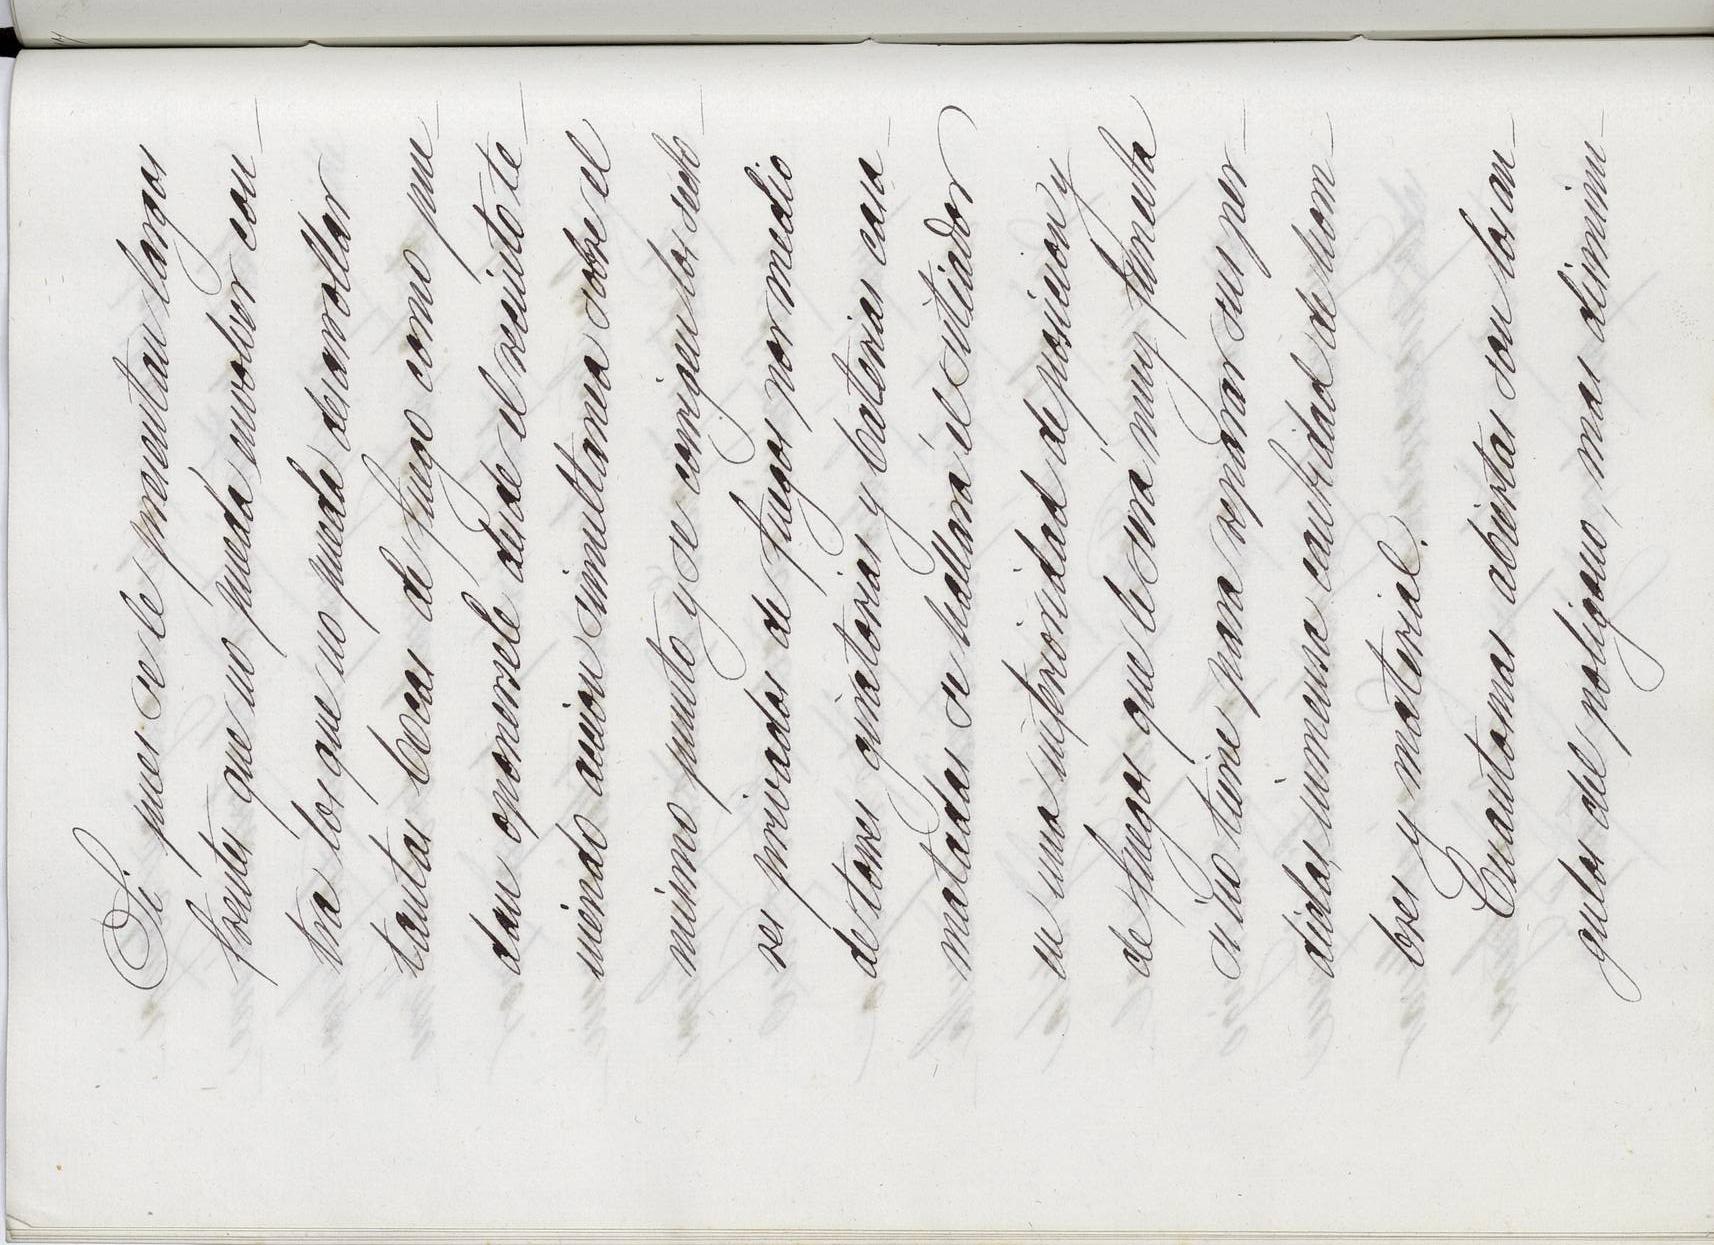 Si pues se le presentan largos
frentes que no pueda envolver con-
tra los que no pueda desarrollar
tantas bocas de fuego como pue-
dan oponersele desde el recinto te-
niendo accion simultanea sobre el
mismo punto y se corrigen los secto-
res privados de fuegos por medio
de torres giratorias y baterias casa-
matadas se hallará el sitiador
en una inferioridad de posicion y
de fuegos que le será muy funesta
si no tiene para reparar sus per-
didas, inmensa cantidad de hom-
bres y material.
Cuanto mas abiertos son los an-
gulos del poligono, mas disminu-